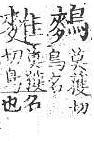 莫獲切
鳥名
莫獲
切鳥
名
也